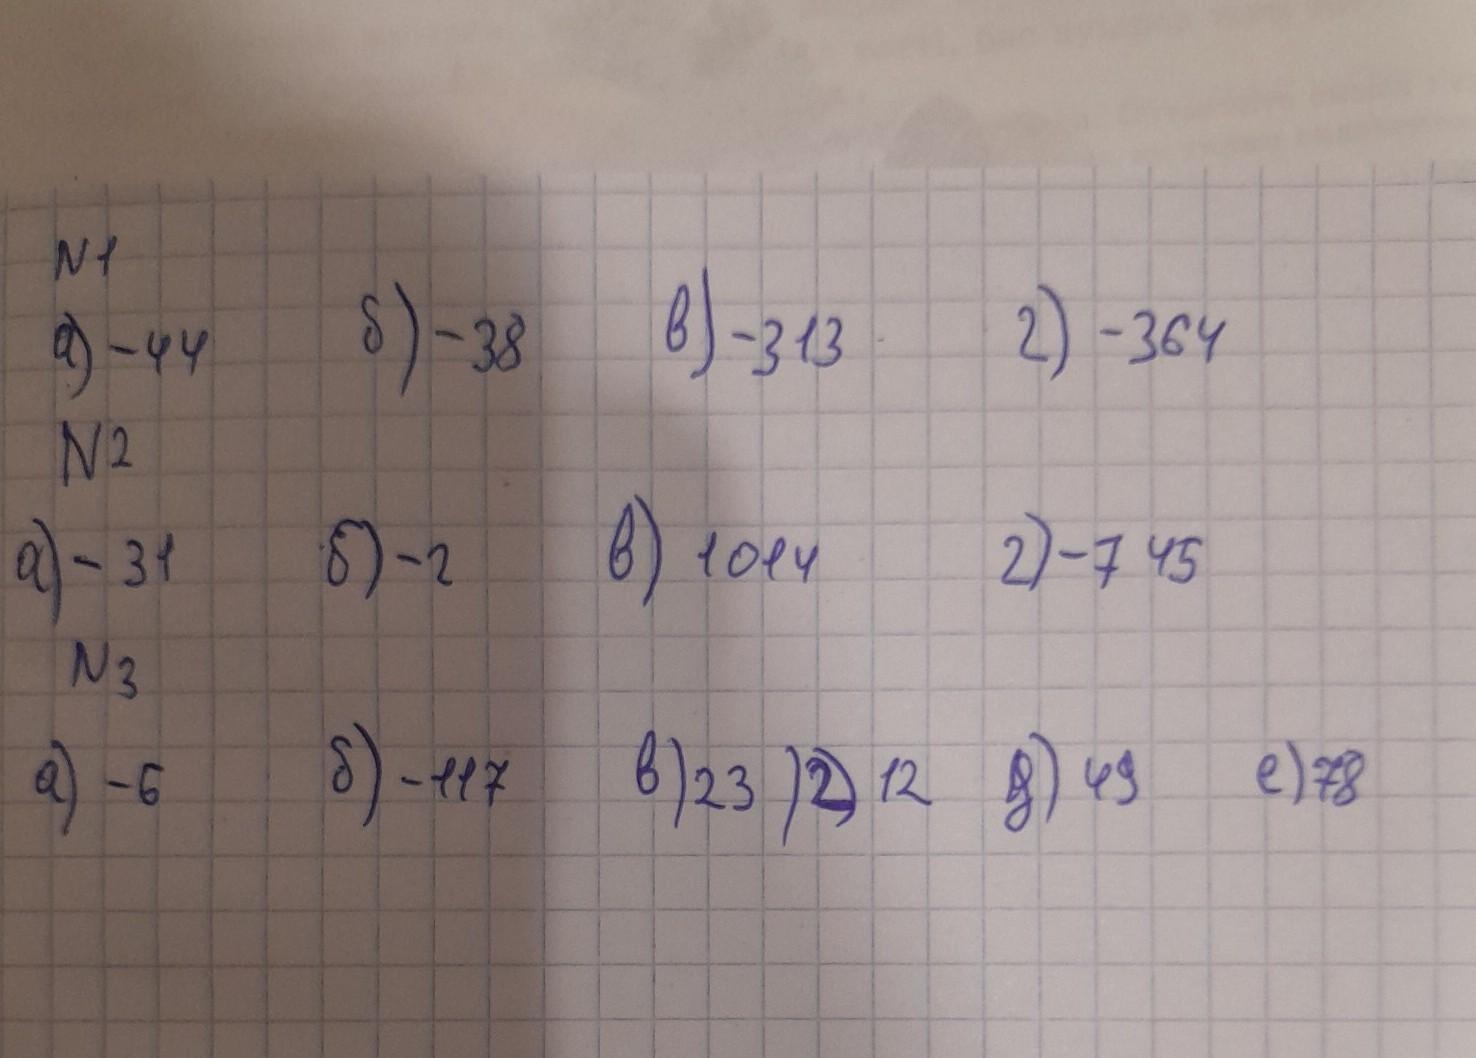 N1
а) -44 б) -38 в) -313 г) -364
N2
а) -31 б) -2 в) 1014 г) -745
N3
а) -6 б) -117 в) 23 г) 12 д) 49 е) 78